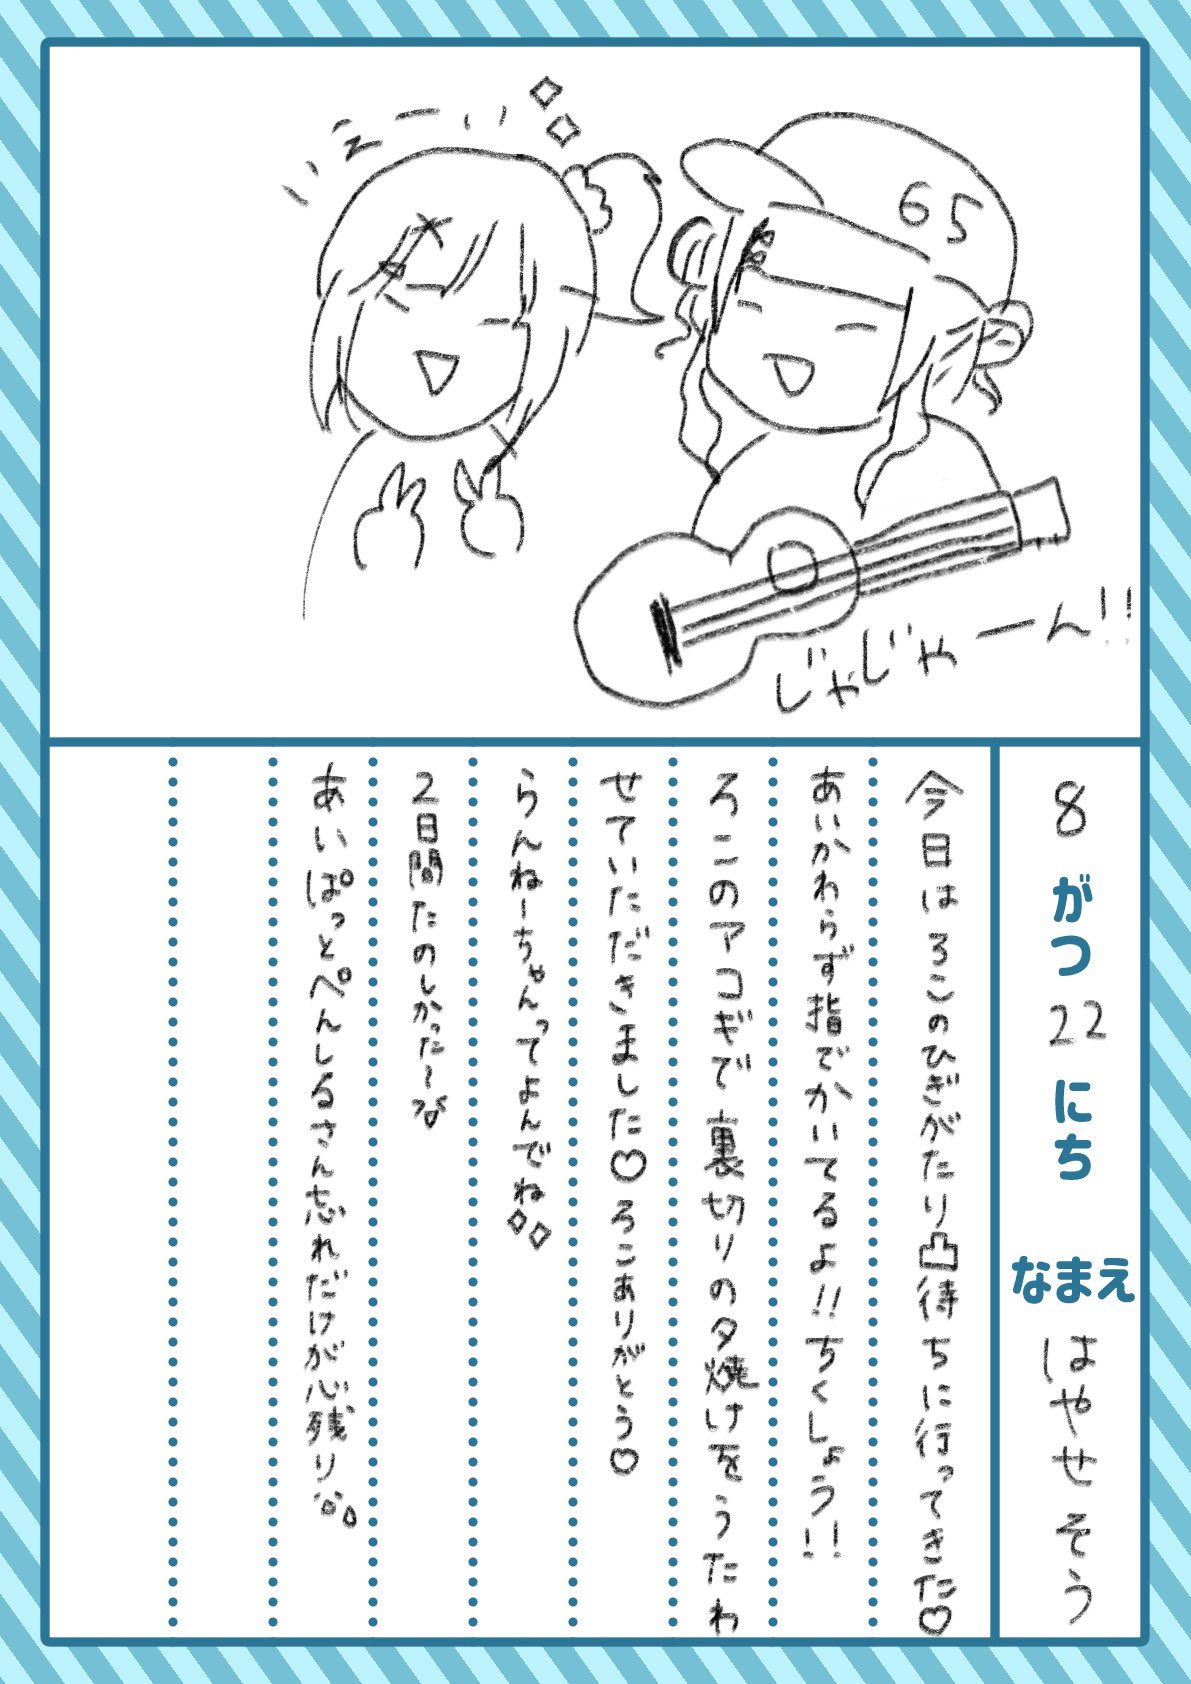 いえーい
65
じゃじゃーん!!
8がつ22にち なまえ はやせ そう
今日はろこのひぎがたり凸待ちに行ってきた♡
あいかわらず指でかいてるよ!!ちくしょう!!
ろこのアコギで裏切りの夕焼けをうたわ
せていただきました♡ろこありがとう♡
らんねーちゃんってよんでね
2日間たのしかった〜
あいぱっとぺんしるさん忘れだけが心残り